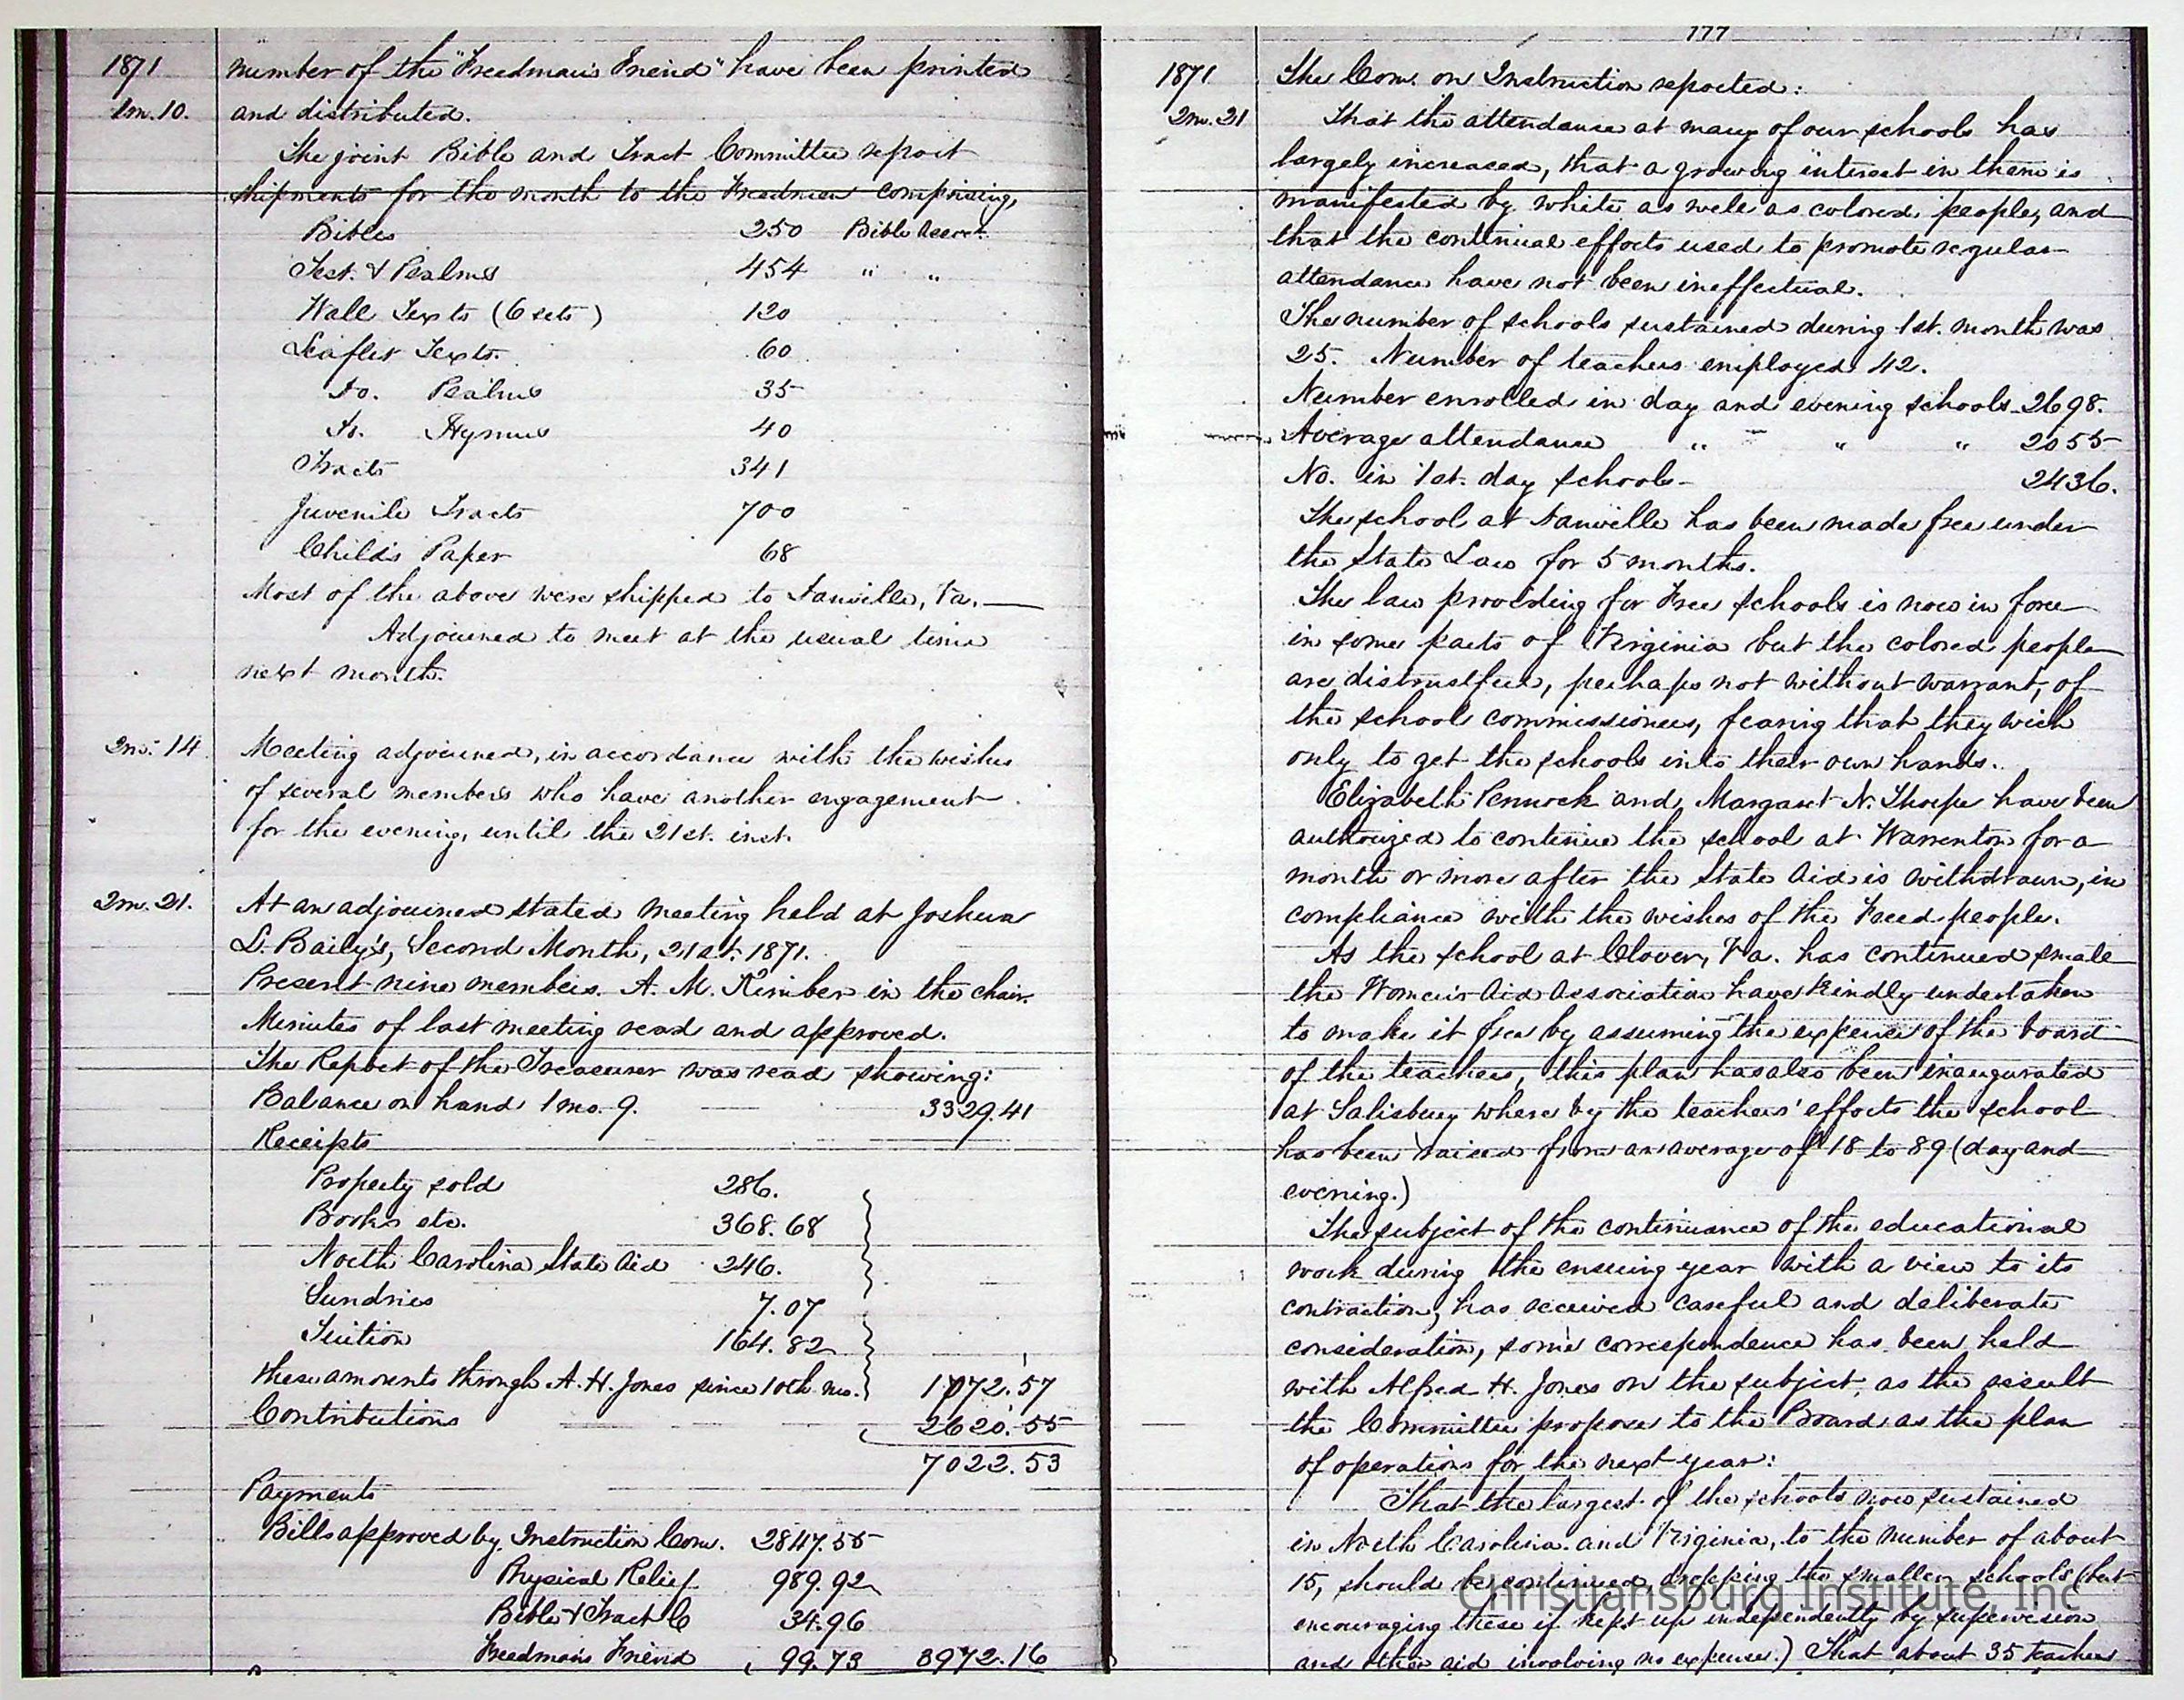 1871 number of the "Freedman's Friend" have been printed
1m. 10. and distributed.
The joint Bible and Tract Committee report
shipments for the month to the Freedmen comprising,
Bibles 250 Bible Assoct.
Test. & Psalms 454 " "
Wall Texts (6 sets) 120
Leaflet Texts. 60
Do. Psalms 35
Do. Hymns 40
Tracts 341
Juvenile Tracts 700
Child's Paper 68
Most of the above were shipped to Danville, Va.—
Adjourned to meet at the usual time
next month.
2m. 14 Meeting adjourned, in accordance with the wishes
of several members who have another engagement
for the evening, until the 21st. inst.
2m. 21. At an adjourned stated meeting held at Joshua
L. Baily's, Second Month, 21st. 1871.
Present nine members. A. M. Kimber in the chair.
Minutes of last meeting read and approved.
The Report of the Treasurer was read showing:
Balance on hand 1 mo. 9. 3329.41
Receipts
Property sold 286.
Books etc. 368.68
North Carolina State Aid 246.
Sundries 7.07
Tuition 164.82
these amounts through A. H. Jones since 10th mo. 1072.57
Contributions 2620.55
7022.53
Payments
Bills approved by Instruction Com. 2847.55
Physical Relief 989.92
Bible & Tract C 34.96
Freedman's Friend 99.73 3972.16
177
1871 The Com. on Instruction reported:
2m. 21 That the attendance at many of our schools has
largely increased, that a growing interest in them is
manifested by white as well as colored people, and
that the continual efforts used to promote regular
attendance have not been ineffectual.
The number of schools sustained during 1st. month was
25. Number of teachers employed 42.
Number enrolled in day and evening schools 2698.
Average attendance " " " 2055
No. in 1st. day schools- 2436.
The school at Danville has been made free under
the State Law for 5 months.
The law providing for Free Schools is now in force
in some parts of Virginia but the colored people
are distrustful, perhaps not without warrant, of
the school commissioners, fearing that they wish
only to get the schools into their own hands.
Elizabeth Pennock and Margaret N. Thorpe have been
authorized to continue the school at Warrenton for a
month or more after the State Aid is withdrawn, in
compliance with the wishes of the Freed-people.
As the school at Clover, Va. has continued small
the Women's Aid Association have kindly undertaken
to make it free by assuming the expense of the board
of the teachers, this plan has also been inaugurated
at Salisbury where by the teachers' efforts the school
has been raised from an average of 18 to 89 (day and
evening.)
The subject of the continuance of the educational
work during the ensuing year with a view to its
contraction, has received careful and deliberate
consideration, some correspondence has been held
with Alfred H. Jones on the subject, as the result
the Committee propose to the Board as the plan
of operations for the next year:
That the largest of the schools now sustained
in North Carolina and Virginia, to the number of about
15, should be continued, dropping the smaller schools (but
encouraging these if kept up independently by supervision
and other aid involving no expense.) That about 35 teachers
Christiansburg Institute, Inc